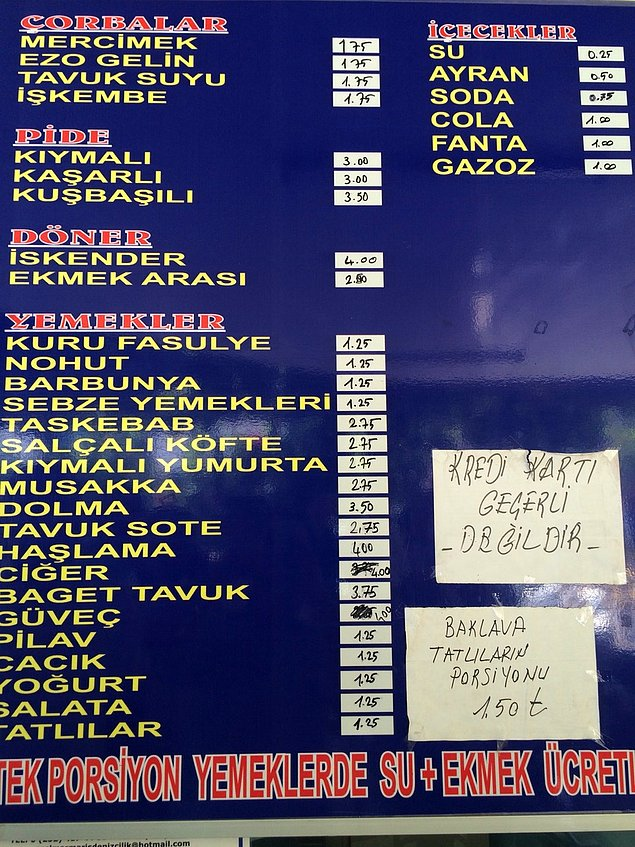 ÇORBALAR
MERCİMEK 1.75
EZO GELİN 1.75
TAVUK SUYU 1.75
İŞKEMBE 1.75
PİDE
KIYMALI 3.00
KAŞARLI 3.00
KUŞBAŞILI 3.50
DÖNER
İSKENDER 4.00
EKMEK ARASI 2.50
YEMEKLER
KURU FASULYE 1.25
NOHUT 1.25
BARBUNYA 1.25
SEBZE YEMEKLERİ 1.25
TASKEBAB 2.75
SALÇALI KÖFTE 2.75
KIYMALI YUMURTA 2.75
MUSAKKA 2.75
DOLMA 3.50
TAVUK SOTE 2.75
HAŞLAMA 400
CİĞER 4.00
BAGET TAVUK 3.75
GÜVEÇ 4.00
PİLAV 1.25
CACIK 1.25
YOĞURT 1.25
SALATA 1.25
TATLILAR 1.25
İÇECEKLER
SU 0.25
AYRAN 0.50
SODA 0.75
COLA 1.00
FANTA 1.00
GAZOZ 1.00
KREDİ KARTI
GEÇERLİ
- DEĞİLDİR -
BAKLAVA
TATLILARIN
PORSİYONU
1.50 ₺
TEK PORSİYON YEMEKLERDE SU + EKMEK ÜCRETL